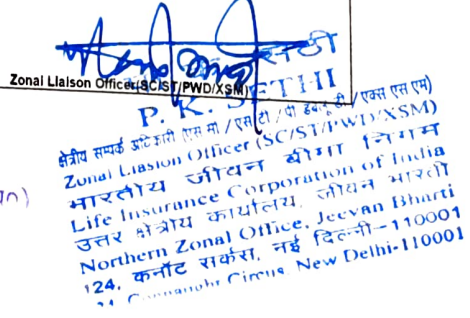 सेठी
Zonal Liaison Officer(SC/ST/PWD/XSM)
P. K. SETHI
क्षेत्रीय सम्पर्क अधिकारी (एस सी / एस टी / पी डबल्यू डी / एक्स एस एम)
Zonal Liasion Officer (SC/ST/PWD/XSM)
भारतीय जीवन बीमा निगम
Life Insurance Corporation of India
उत्तर क्षेत्रीय कार्यालय, जीवन भारती
Northern Zonal Office, Jeevan Bharti
124, कनॉट सर्कस, नई दिल्ली-110001
Circus, New Delhi-110001